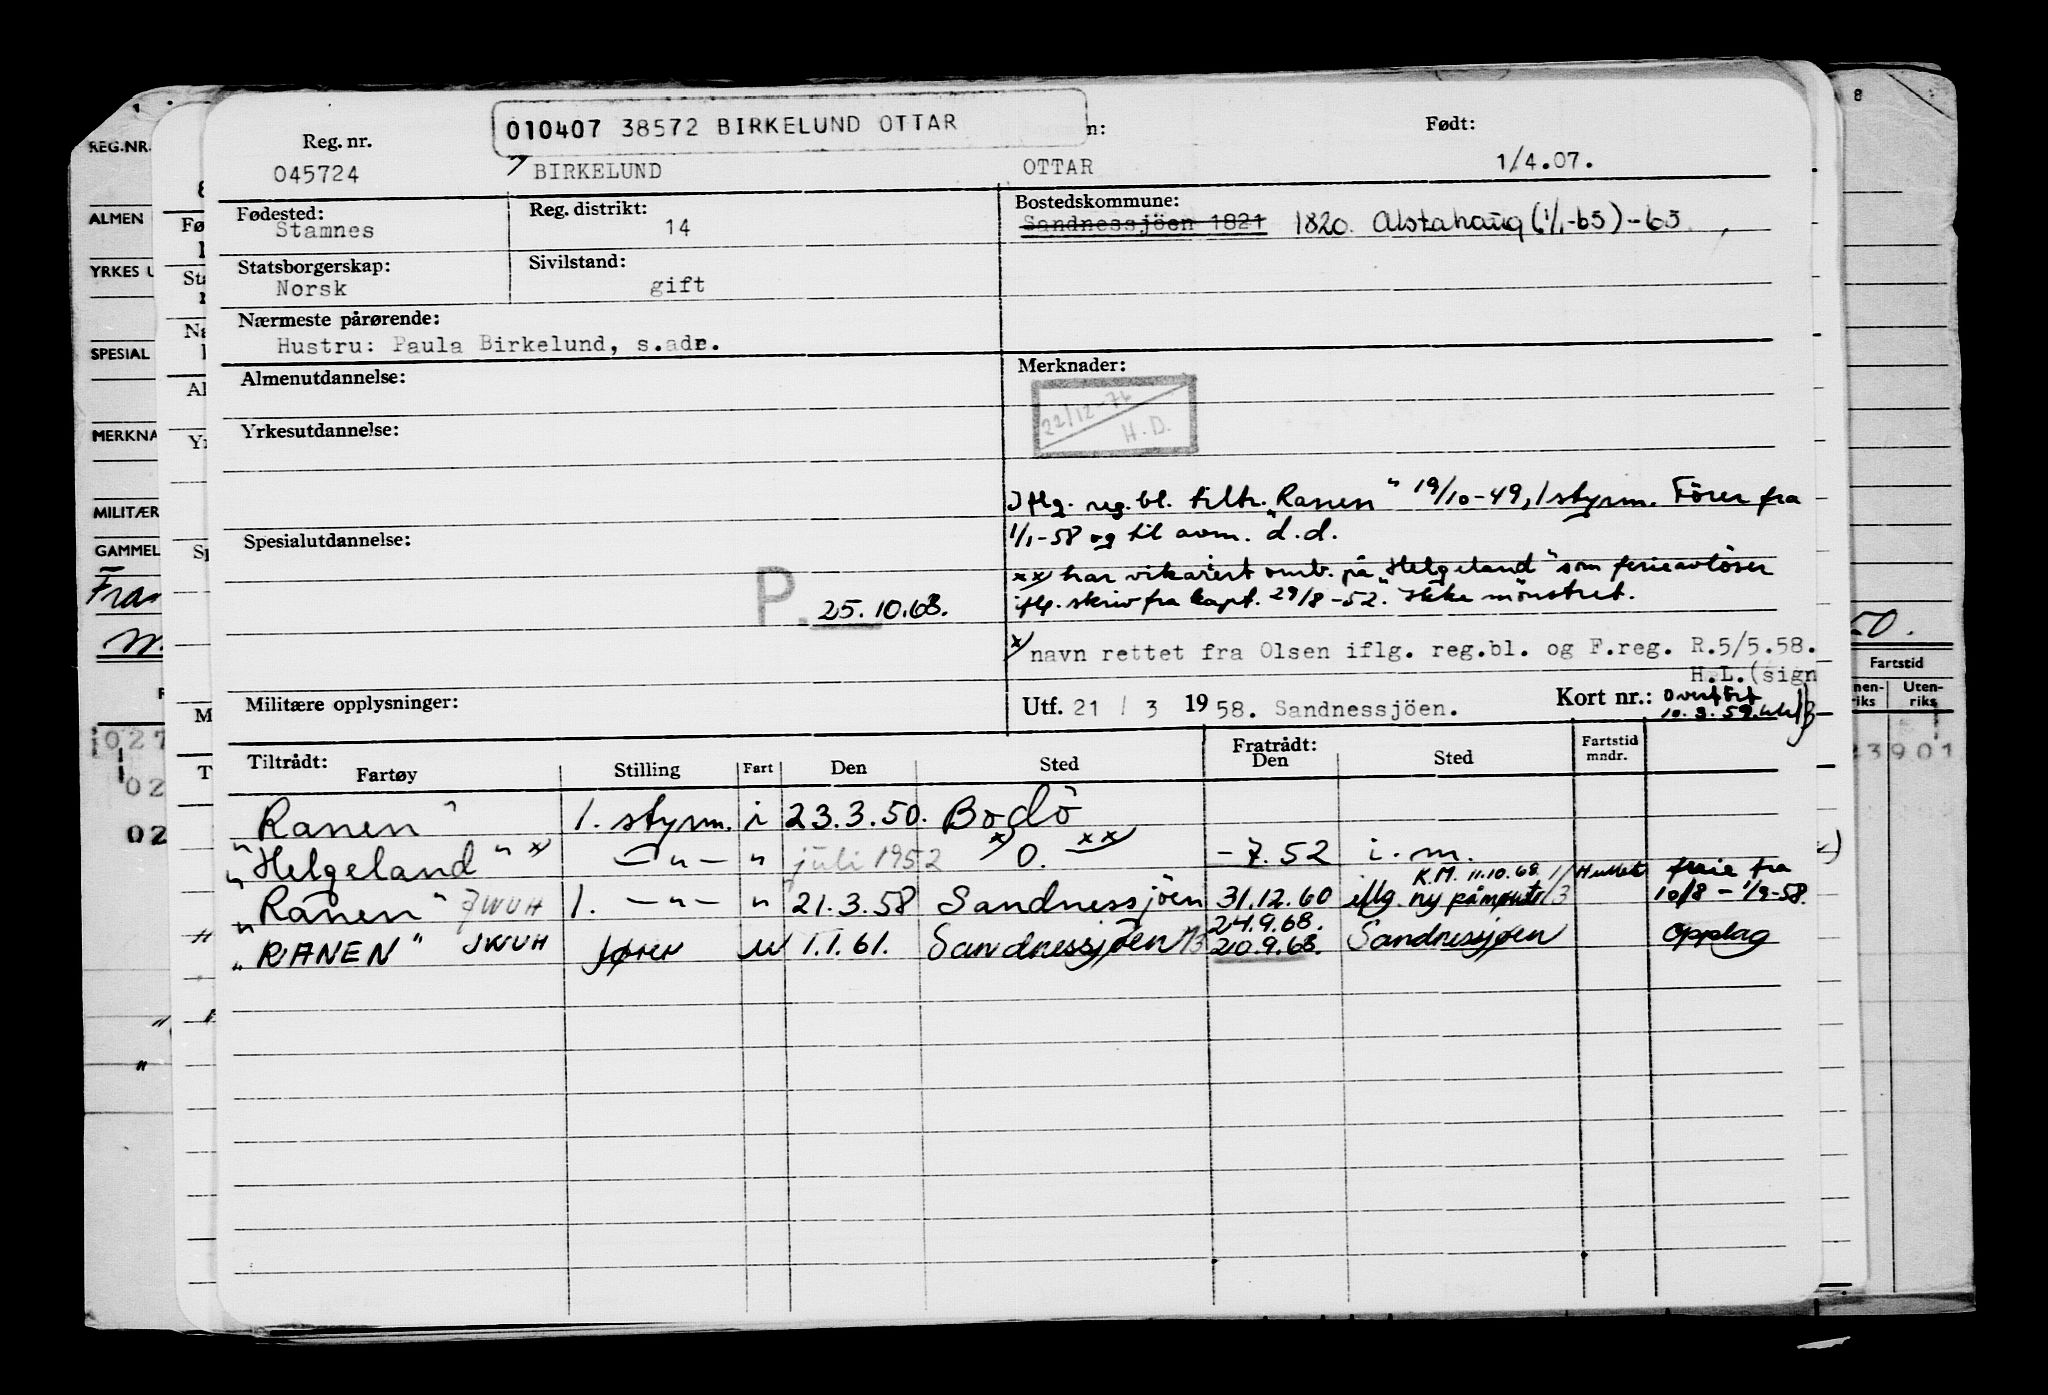 010407 38572 BIRKELUND OTTAR
Reg. nr. n: Født:
045724 BIRKELUND OTTAR 1/4.07.
Fødested: Reg. distrikt: Bostedskommune:
Stamnes 14 Sandnessjöen 1821 1820. Alstahaug (1/1-65) -65
Statsborgerskap: Sivilstand:
Norsk gift
Nærmeste pårørende:
Hustru: Paula Birkelund, s.adr.
Almenutdannelse: Merknader:
22/12-76
H.D.
Yrkesutdannelse:
Iflg. reg. bl. tiltr. "Ranen" 19/10-49, 1 styrm. Förer fra
1/1-58 og til avm. d.d.
Spesialutdannelse:
xx) har vikariert omb. på "Helgeland" som ferieavløser
iflg. skriv fra kapt. 29/8-52. Ikke mønstret.
P. 25.10.68.
x) navn rettet fra Olsen iflg. reg.bl. og F.reg. R.5/5.58.
H.L.(sign
Militære opplysninger: Utf. 21 / 3 1958. Sandnessjöen. Kort nr.: Overført
10.3.59
Tiltrådt: Fratrådt: Fartstid
Fartøy Stilling Fart Den Sted Den Sted mndr.
"Ranen" 1. styrm. i 23.3.50. Bodö
"Helgeland" x) -"- " juli 1952 x) O. xx) -7.52 i.m.
K.M. 11.10.68 ferie fra
"Ranen" JWUH 1. -"- " 21.3.58 Sandnessjöen 31.12.60 iflg. ny påmønstr 10/8 - 1/9-58.
24.9.68.
"RANEN" JWUH fører 1.1.61. Sandnessjøen 20.9.68. Sandnessjøen Opplag
REG.NR.
ALMEN
YRKES U
SPESIAL
MERKNA
MILITÆR
GAMMEL
Fra
027
02
02
8
50.
Fartstid
nen- Uten-
riks riks
23901